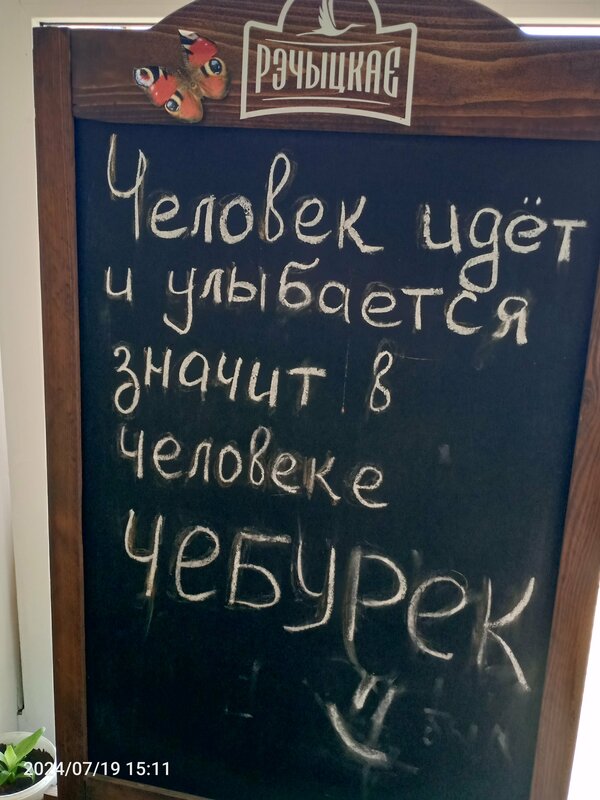 РЭЧЫЦКАЕ
Человек идёт
и улыбается
значит в
человеке
чебурек
2024/07/19 15:11